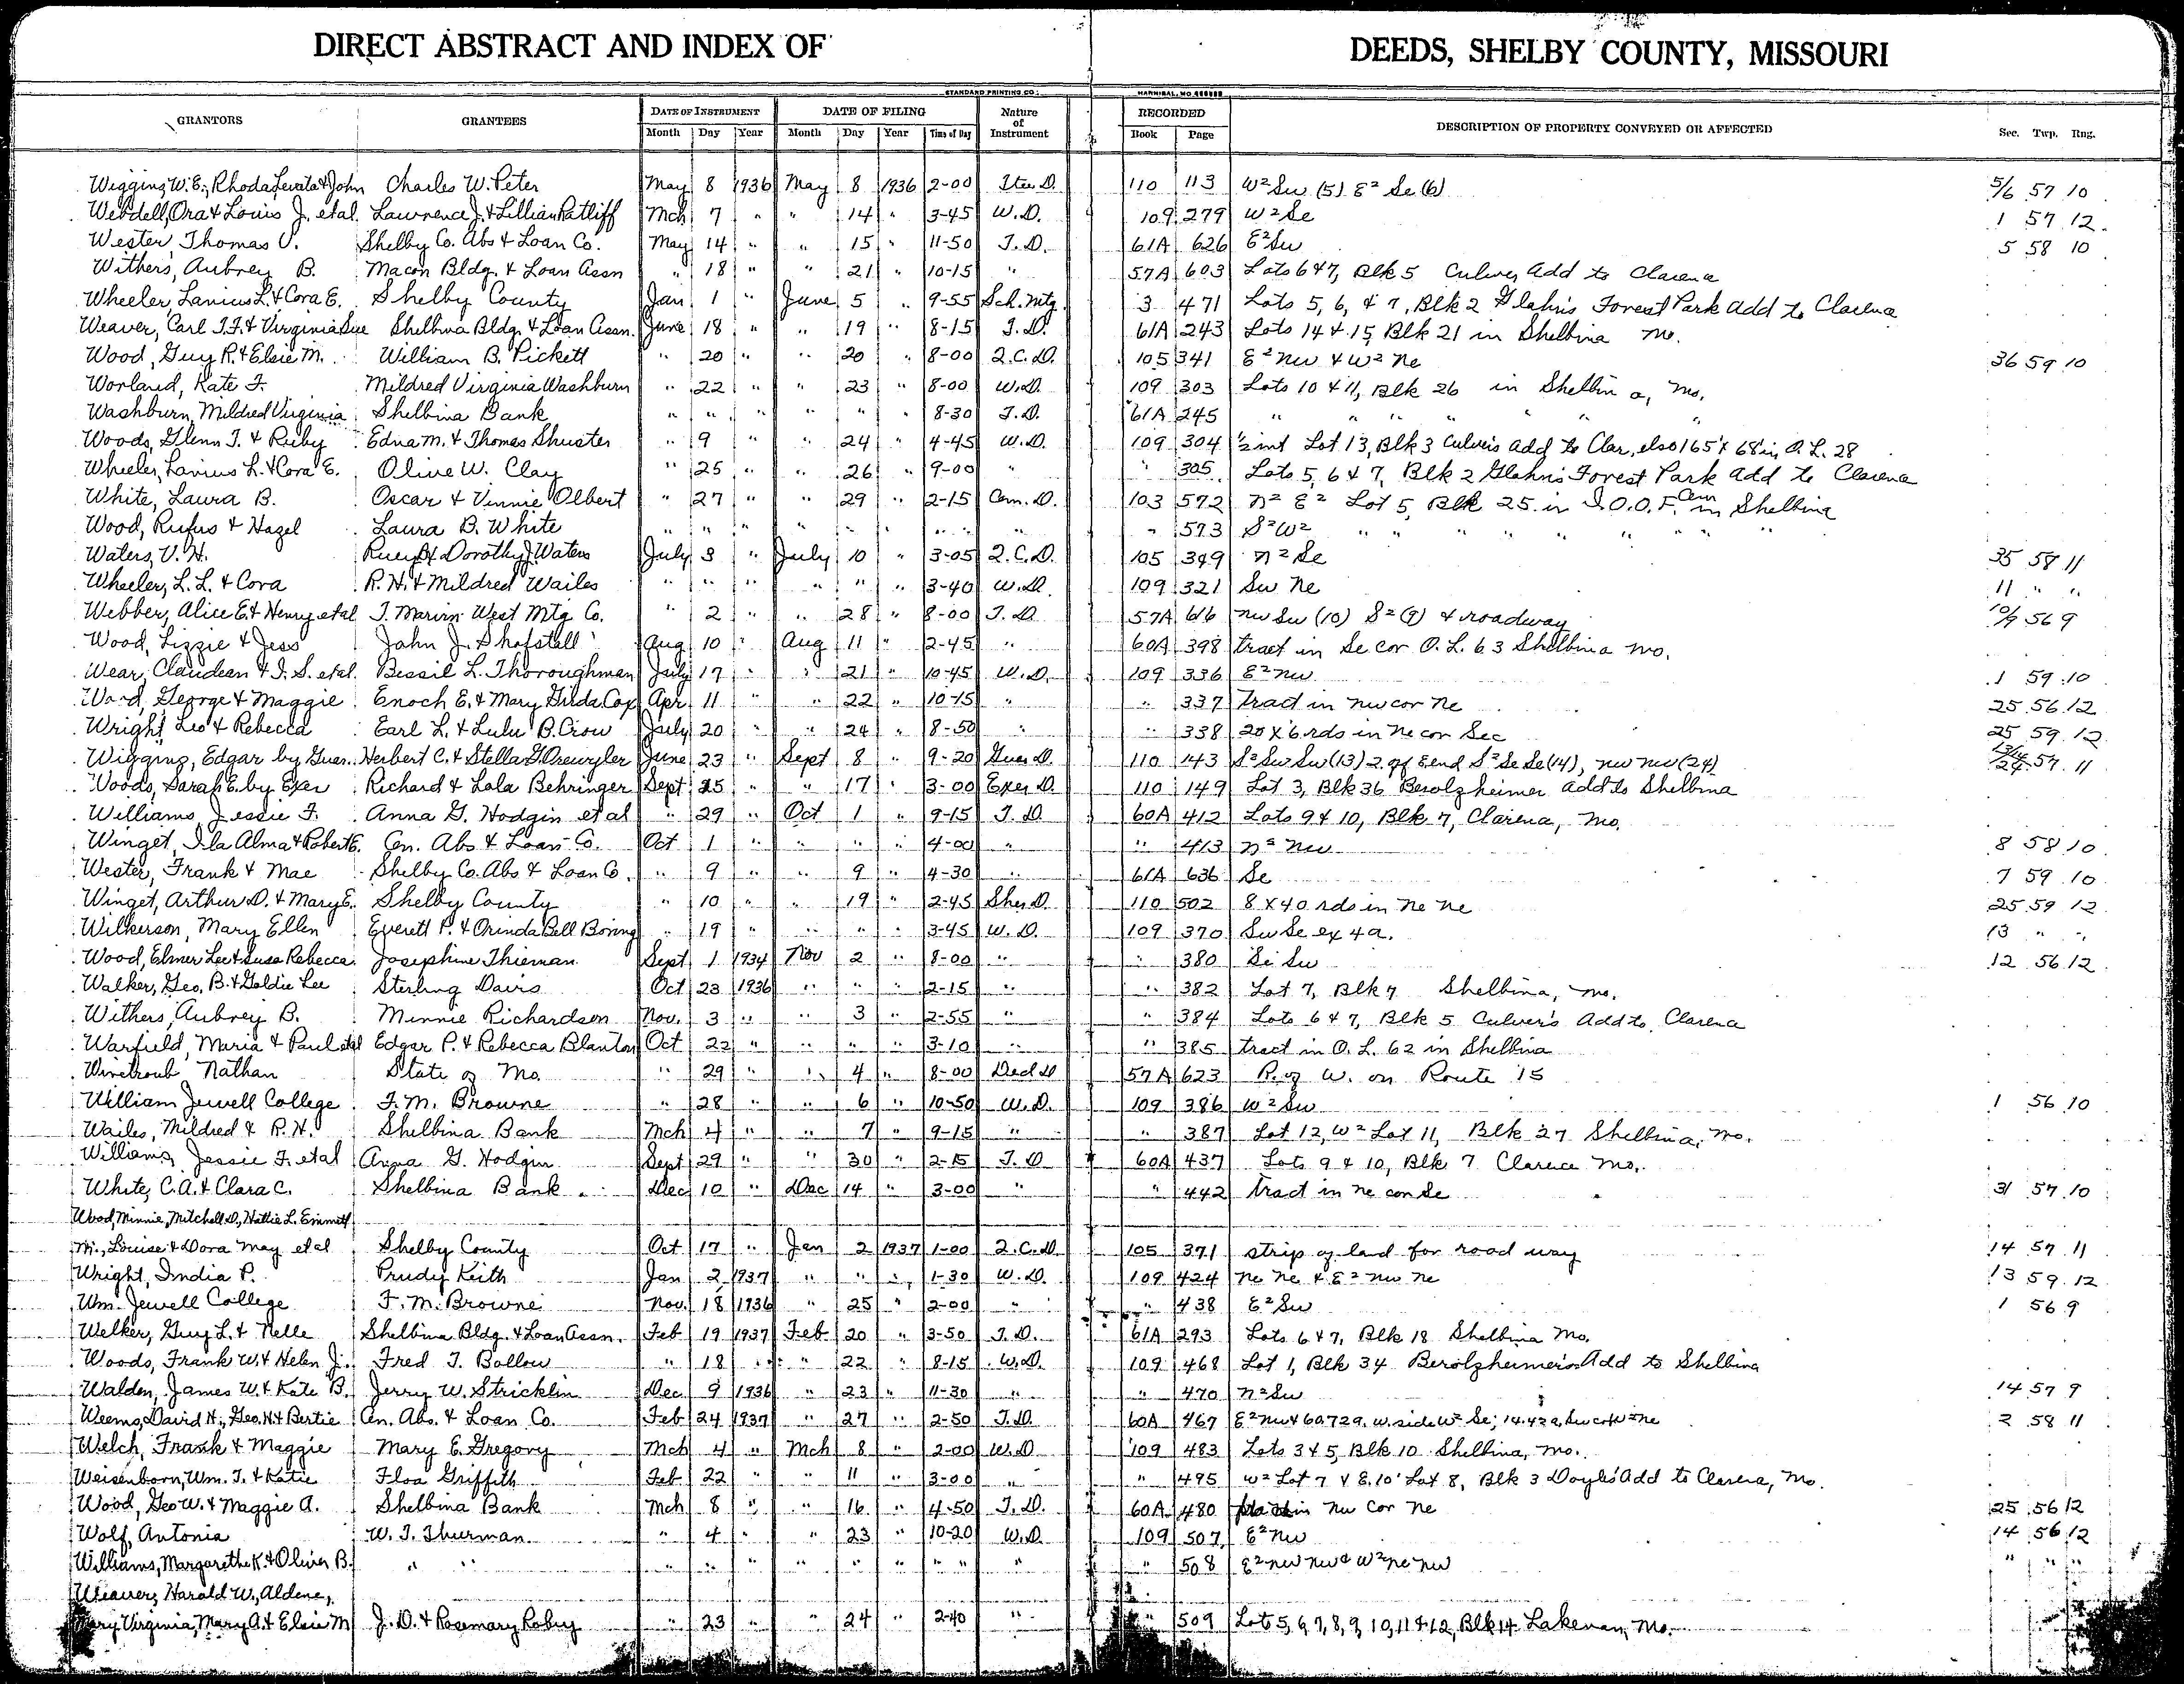 DIRECT ABSTRACT AND INDEX OF DEEDS, SHELBY COUNTY, MISSOURI
STANDARD PRINTING CO. HANNIBAL, MO.
GRANTORS GRANTEES DATE OF INSTRUMENT DATE OF FILING Nature of Instrument RECORDED DESCRIPTION OF PROPERTY CONVEYED OR AFFECTED Sec. Twp. Rng.
Month Day Year Month Day Year Time of Day Book Page
Wiggins, W.E., Rhoda, Levata & John Charles W. Peter May 8 1936 May 8 1936 2-00 110 113 W² Sw (5) E² Se (6) 5/6 57 10
Webdell, Ora & Louis J. et al. Lawrence J. & Lillian Ratliff Mch 7 " " 14 " 3-45 W.D. 109 279 W² Se 1 57 12
Wester, Thomas V. Shelby Co. Abs & Loan Co. May 14 " " 15 " 11-50 T.D. 61A 626 E² Sw 5 58 10
Withers, Aubrey B. Macon Bldg. & Loan Assn " 18 " " 21 " 10-15 " 57A 603 Lots 6 & 7, Blk 5 Culver Add to Clarence
Wheeler, Lanius L. & Cora E. Shelby County Jan 1 " June 5 " 9-55 Sch. Mtg. 3 471 Lots 5, 6, & 7, Blk 2 Glahn's Forest Park Add to Clarence
Weaver, Carl T.F. & Virginia Sue Shelbina Bldg. & Loan Assn. June 18 " " 19 " 8-15 T.D. 61A 243 Lots 14 & 15, Blk 21 in Shelbina Mo.
Wood, Guy R. & Elsie M. William B. Pickett " 20 " " 20 " 8-00 Q.C.D. 105 341 E² Nw & W² Ne 36 59 10
Worland, Kate F. Mildred Virginia Washburn " 22 " " 23 " 8-00 W.D. 109 303 Lots 10 & 11, Blk 26 in Shelbina, Mo.
Washburn, Mildred Virginia Shelbina Bank " " " " " 8-30 T.D. 61A 245 " " " " " " "
Woods, Glenn T. & Ruby Edna M. & Thomas Shuster " 9 " " 24 " 4-45 W.D. 109 304 ½ int Lot 13, Blk 3 Culver's Add to Clar, also 165' x 68' in O.L. 28
Wheeler, Lanius L. & Cora E. Olive W. Clay " 25 " " 26 " 9-00 " " 305 Lots 5, 6 & 7, Blk 2 Glahn's Forest Park Add to Clarence
White, Laura B. Oscar & Vinnie Olbert " 27 " " 29 " 2-15 Cem. D. 103 572 N² E² Lot 5, Blk 25 in I.O.O.F. Cem in Shelbina
Wood, Rufus & Hazel Laura B. White " " " " " " " " " 573 S² W² " " " " " " "
Waters, V.H. & Dorothy J. Waters July 3 " July 10 " 3-05 Q.C.D. 105 349 N² Se 35 58 11
Wheeler, L.L. & Cora R.H. & Mildred Wailes " " " " " " 3-40 W.D. 109 321 Sw Ne 11 " "
Webber, Alice E. & Henry et al T. Marvin West Mtg Co. " 2 " " 28 " 8-00 T.D. 57A 616 Nw Sw (10) S² (9) & roadway 10/9 56 9
Wood, Lizzie & Jess John J. Shofstall Aug 10 " Aug 11 " 2-45 " 60A 398 tract in Se cor O.L. 63 Shelbina Mo.
Wear, Claudean & I.S. et al. Bessie L. Thoroughman July 17 " " 21 " 10-45 W.D. 109 336 E² Nw 1 59 10
Ward, George & Maggie Enoch E. & Mary Gilda Cox Apr 11 " 22 " 10-15 " " 337 Tract in Nw cor Ne 25 56 12
Wright, Leo & Rebecca Earl L. & Lulu B. Crow July 20 " 24 " 8-50 " " 338 20 x 6 rds in Ne cor Sec 25 59 12
Wiggins, Edgar by Guar. Herbert C. & Stella G. Drewyler June 23 " Sept 8 " 9-20 Guar D. 110 143 S² Sw Sw (13) 2 of E end S² Se Se (14), Nw Nw (24) 13/14/24 57 11
Woods, Sarah E. by Exer Richard & Lola Behringer Sept 15 " " 17 " 3-00 Exer D. 110 149 Lot 3, Blk 36 Berolzheimer Add to Shelbina
Williams, Jessie F. Anna G. Hodgin et al " 29 " Oct 1 " 9-15 T.D. 60A 412 Lots 9 & 10, Blk 7, Clarence, Mo.
Winget, Ila Alma & Robert E. Cen. Abs & Loan Co. Oct 1 " " " " 4-00 " " 413 N² Nw 8 58 10
Wester, Frank & Mae Shelby Co. Abs & Loan Co. " 9 " " 9 " 4-30 " 61A 636 Se 7 59 10
Winget, Arthur D. & Mary E. Shelby County " 10 " " 19 " 2-45 Sher D. 110 502 8 x 40 rds in Ne Ne 25 59 12
Wilkerson, Mary Ellen Everett P. & Orinda Bell Boring " 19 " " " " 3-45 W.D. 109 370 Sw Se ex 4a. 13 " "
Wood, Elmer Lee & Susa Rebecca Josephine Thieman Sept 1 1934 Nov 2 " 8-00 " " 380 Se Sw 12 56 12
Walker, Geo. B. & Goldie Lee Sterling Davis Oct 23 1936 " " " 2-15 " " 382 Lot 7, Blk 7 Shelbina, Mo.
Withers, Aubrey B. Minnie Richardson Nov. 3 " " 3 " 2-55 " " 384 Lots 6 & 7, Blk 5 Culver's Add to Clarence
Warfield, Maria & Paul et al Edgar P. & Rebecca Blanton Oct 22 " " " " 3-10 " " 385 tract in O.L. 62 in Shelbina
Winetroub Nathan State of Mo. " 29 " " 4 " 8-00 Ded D 57A 623 R. of W. on Route 15
William Jewell College F.M. Browne " 28 " " 6 " 10-50 W.D. 109 386 W² Sw 1 56 10
Wailes, Mildred & R.H. Shelbina Bank Mch 4 " " 7 " 9-15 " " 387 Lot 12, W² Lot 11, Blk 27 Shelbina, Mo.
Williams, Jessie F. et al Anna G. Hodgin Sept 29 " " 30 " 2-15 T.D. 60A 437 Lots 9 & 10, Blk 7 Clarence Mo.
White, C.A. & Clara C. Shelbina Bank Dec 10 " Dec 14 " 3-00 " " 442 tract in Ne cor Se 31 57 10
Wood, Minnie, Mitchell D., Hattie L. Emmett
M., Louise & Dora May et al Shelby County Oct 17 " Jan 2 1937 1-00 Q.C.D. 105 371 strip of land for road way 14 57 11
Wright, India P. Prudy Keith Jan 2 1937 " " " 1-30 W.D. 109 424 Ne Ne & E² Nw Ne 13 59 12
Wm. Jewell College F.M. Browne Nov. 18 1936 " 25 " 2-00 " " 438 E² Sw 1 56 9
Welker, Guy L. & Nelle Shelbina Bldg. & Loan Assn. Feb 19 1937 Feb 20 " 3-50 T.D. 61A 293 Lots 6 & 7, Blk 18 Shelbina Mo.
Woods, Frank W. & Helen J. Fred T. Bollow " 18 " " 22 " 8-15 W.D. 109 468 Lot 1, Blk 34 Berolzheimer's Add to Shelbina
Walden, James W. & Kate B. Jerry W. Stricklin Dec 9 1936 " 23 " 11-30 " " 470 N² Sw 14 57 9
Weems, David H., Geo. H. & Bertie Cen. Abs. & Loan Co. Feb 24 1937 " 27 " 2-50 T.D. 60A 467 E² Nw & 60.72a. W. side W² Se; 14.42a Sw cor W² Ne 2 58 11
Welch, Frank & Maggie Mary E. Gregory Mch 4 " Mch 8 " 2-00 W.D. 109 483 Lots 3 & 5, Blk 10 Shelbina, Mo.
Weisenborn, Wm. T. & Katie Floa Griffith Feb 22 " " 11 " 3-00 " " 495 W² Lot 7 & E. 10' Lot 8, Blk 3 Doyle's Add to Clarence, Mo.
Wood, Geo W. & Maggie A. Shelbina Bank Mch 8 " " 16 " 4-50 T.D. 60A 480 in Nw Cor Ne 25 56 12
Wolf, Antonia W.T. Thurman " 4 " " 23 " 10-20 W.D. 109 507 E² Nw 14 56 12
Williams, Margarethe K. & Oliver B. " " " " " " " " " " " 508 E² Nw Nw & W² Ne Nw " " "
Weaver, Harold W., Aldene,
Mary Virginia, Mary A. & Elsie M J.D. & Rosemary Roby " 23 " 24 " 2-40 " " 509 Lots 5, 6, 7, 8, 9, 10, 11 & 12, Blk 14 Lakenan, Mo.